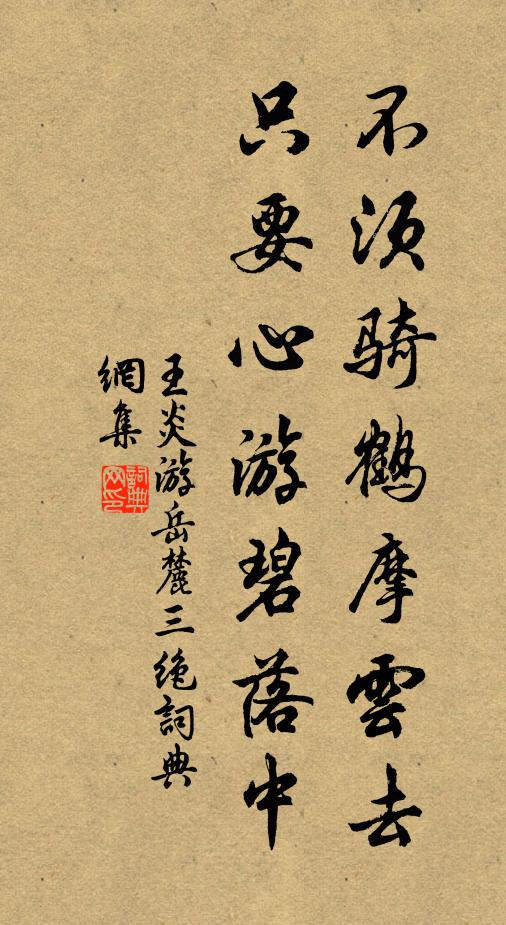 不須騎鶴摩雲去
只要心游碧落中
王炎游岳麓三絶詞典
網集
詞典
网印